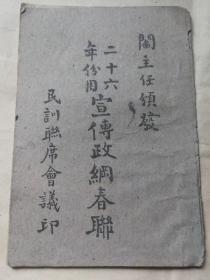 閻主任頒發
二十六年份用宣傳政綱春聯
民訓聯席會議印